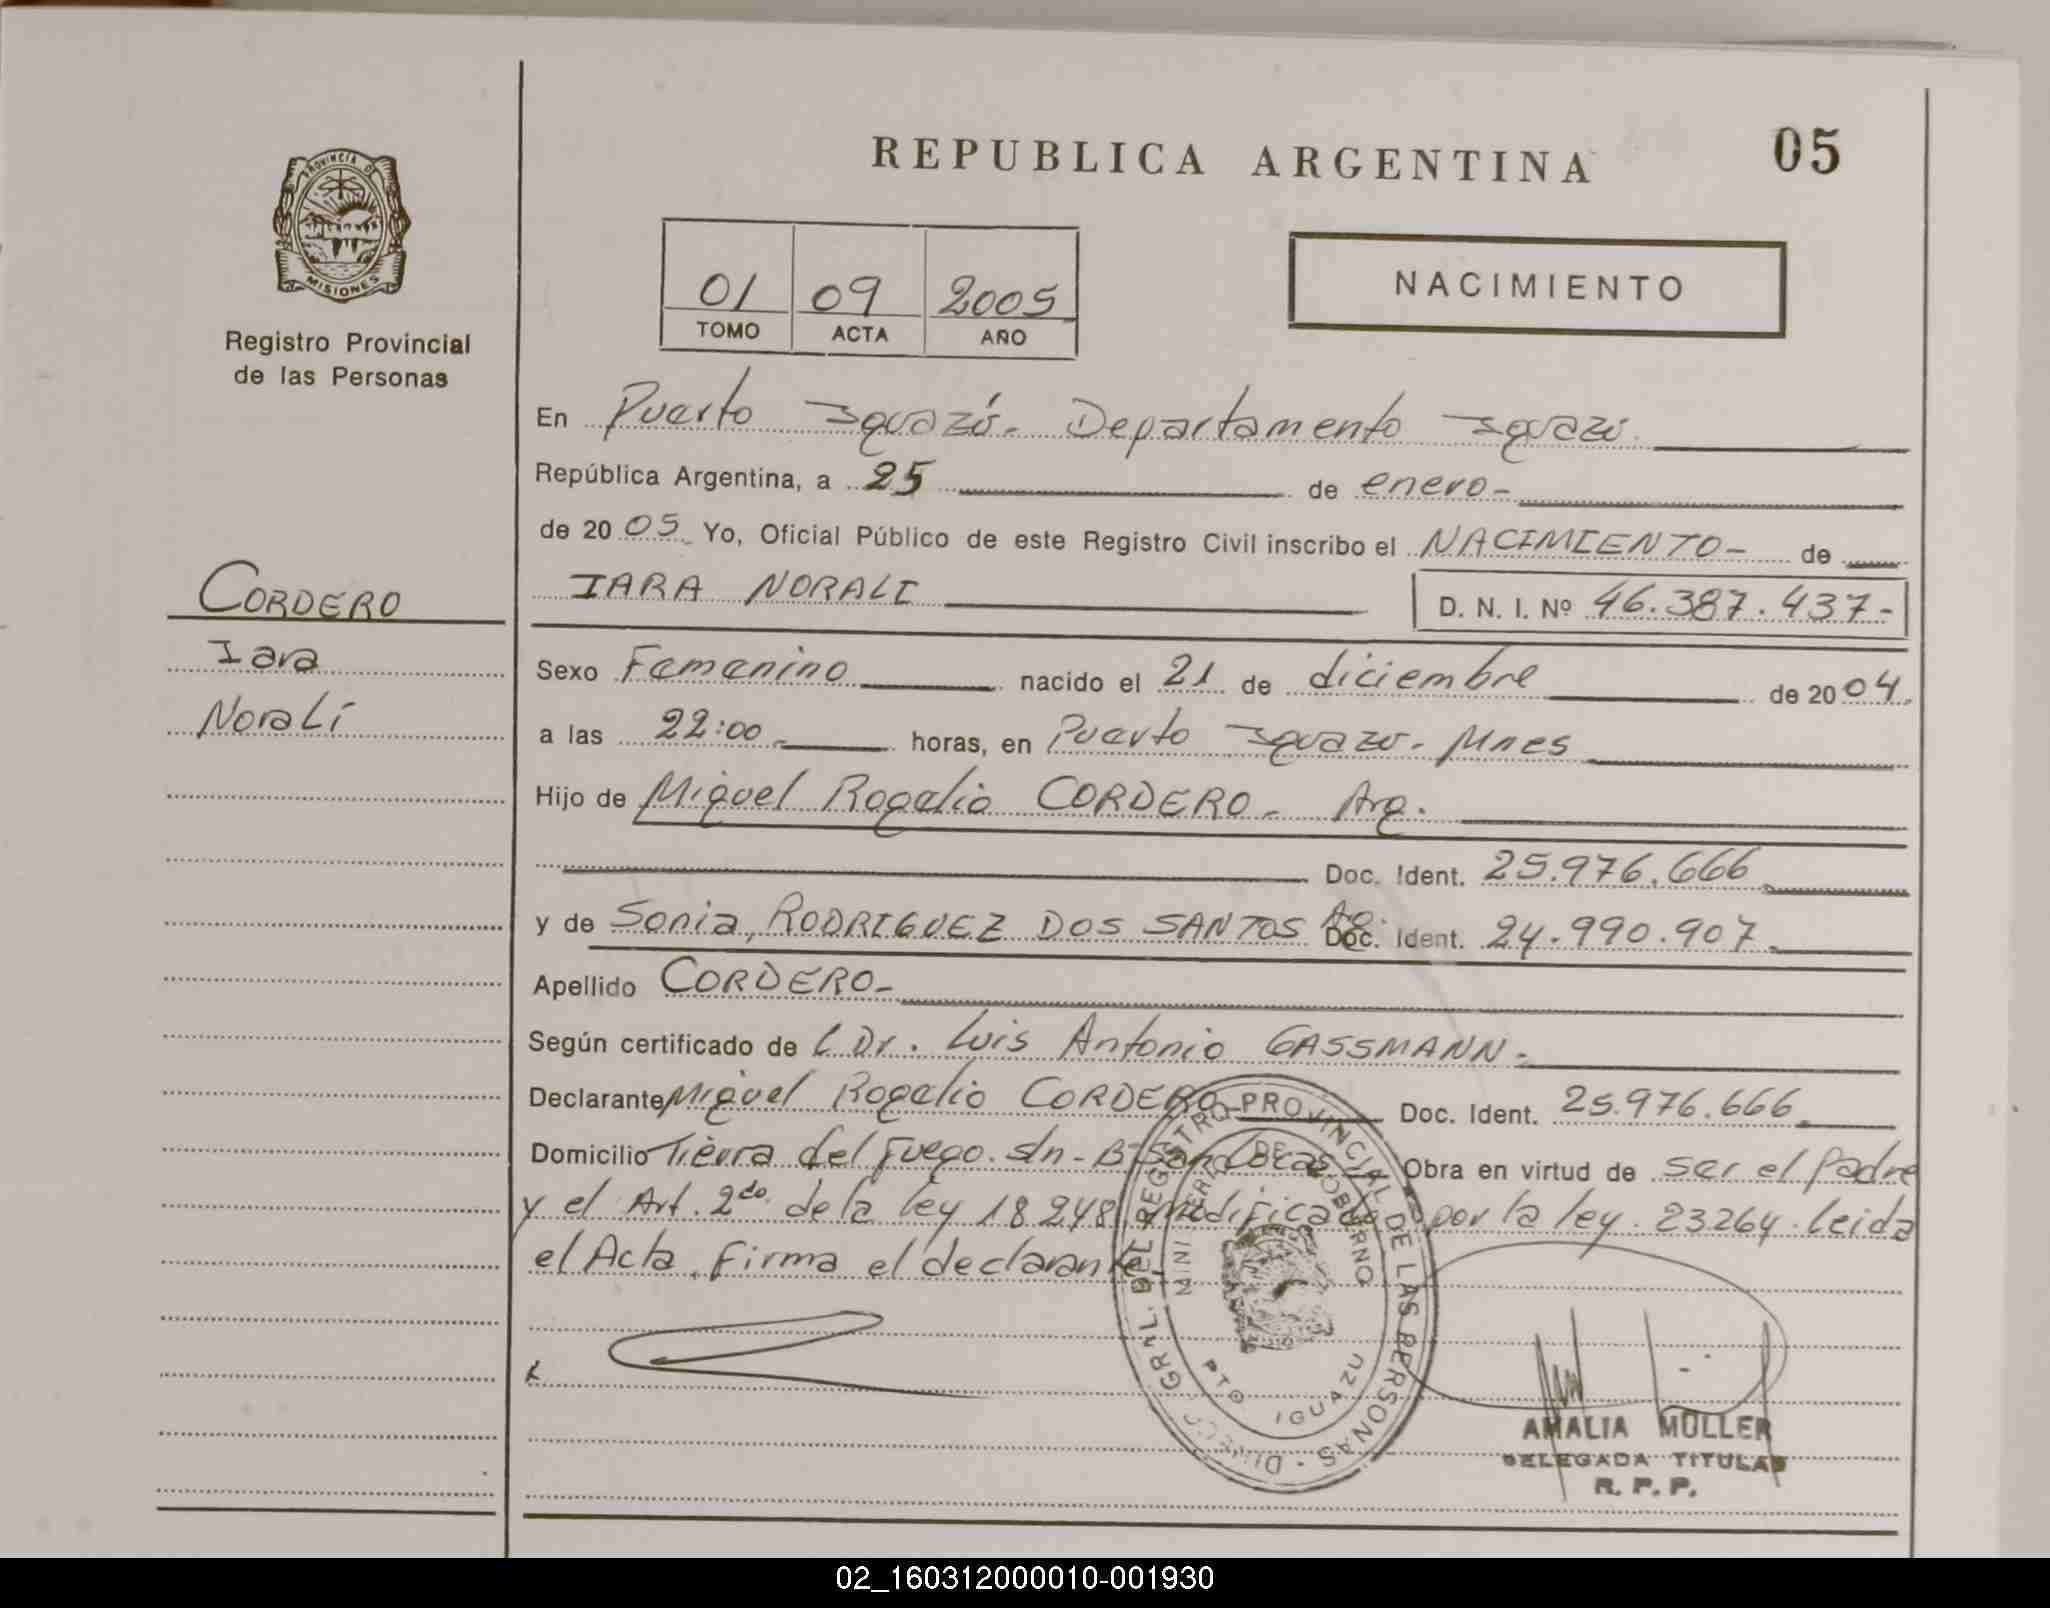 REPUBLICA ARGENTINA
05
PROVINCIA DE
MISIONES
Registro Provincial
de las Personas
01 09 2005
TOMO ACTA AÑO
NACIMIENTO
En Puerto Iguazú. Departamento Iguazú.
República Argentina, a 25 de enero-
de 20 05. Yo, Oficial Público de este Registro Civil inscribo el NACIMIENTO- de
IARA NORALI D. N. I. Nº 46.387.437-
CORDERO
Iara
Noralí
Sexo Femenino nacido el 21 de diciembre de 20 04.
a las 22:00 horas, en Puerto Iguazu. Mnes
Hijo de Miguel Rogelio CORDERO. Arg.
Doc. Ident. 25.976.666
y de Sonia, RODRIGUEZ DOS SANTOS Doc. Ident. 24.990.907
Apellido CORDERO-
Según certificado de l Dr. Luis Antonio GASSMANN.
Declarante Miguel Rogelio CORDERO Doc. Ident. 25.976.666
Domicilio Tierra del Fuego. s/n - Bº San Lucas Obra en virtud de ser el padre
y el Art. 2do. de la ley 18248 modificado por la ley 23264. Leida
el Acta. Firma el declarante.
REGISTRO PROVINCIAL DE LAS PERSONAS
MINISTERIO DE GOBIERNO
PTO IGUAZU
AMALIA MULLER
DELEGADA TITULAR
R. P. P.
02_160312000010-001930